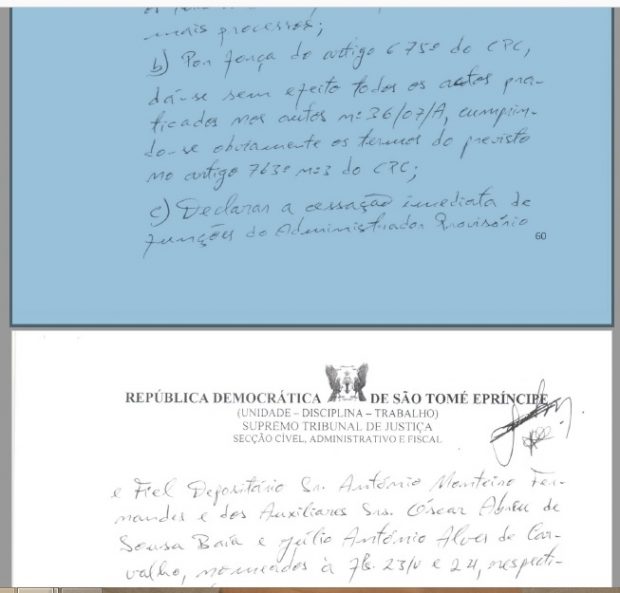 mais processos;
b) Por força do artigo 675º do CPC,
dá-se sem efeito todos os actos pra-
ticados nos autos nº 36/07/A, cumprin-
do-se obviamente os termos do previsto
no artigo 763º nº 3 do CPC;
c) Declarar a cessação imediata de
funções do Administrador Provisório
60
REPÚBLICA DEMOCRÁTICA DE SÃO TOMÉ EPRÍNCIPE
(UNIDADE – DISCIPLINA – TRABALHO)
SUPREMO TRIBUNAL DE JUSTIÇA
SECÇÃO CÍVEL, ADMINISTRATIVO E FISCAL
e Fiel Depositário Sr. António Monteiro Fer-
nandes e dos Auxiliares Srs. Óscar Abreu de
Sousa Baía e Júlio António Alves de Car-
valho, nomeados à fls. 23/v e 24, respecti-